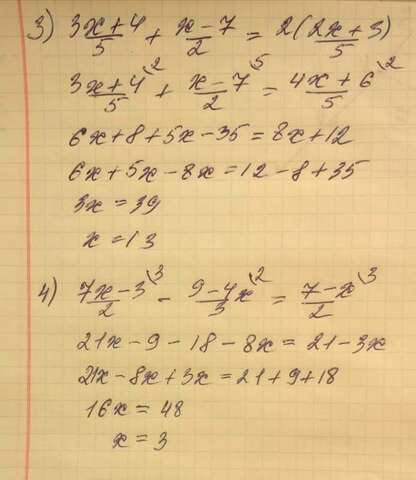 3) (3x+4)/5 + (x-7)/2 = 2(2x+3)/5
(3x+4)/5 \2 + (x-7)/2 \5 = (4x+6)/5 \2
6x+8+5x-35=8x+12
6x+5x-8x=12-8+35
3x=39
x=13
4) (7x-3)/2 \3 - (9-4x)/3 \2 = (7-x)/2 \3
21x-9-18-8x=21-3x
21x-8x+3x=21+9+18
16x=48
x=3